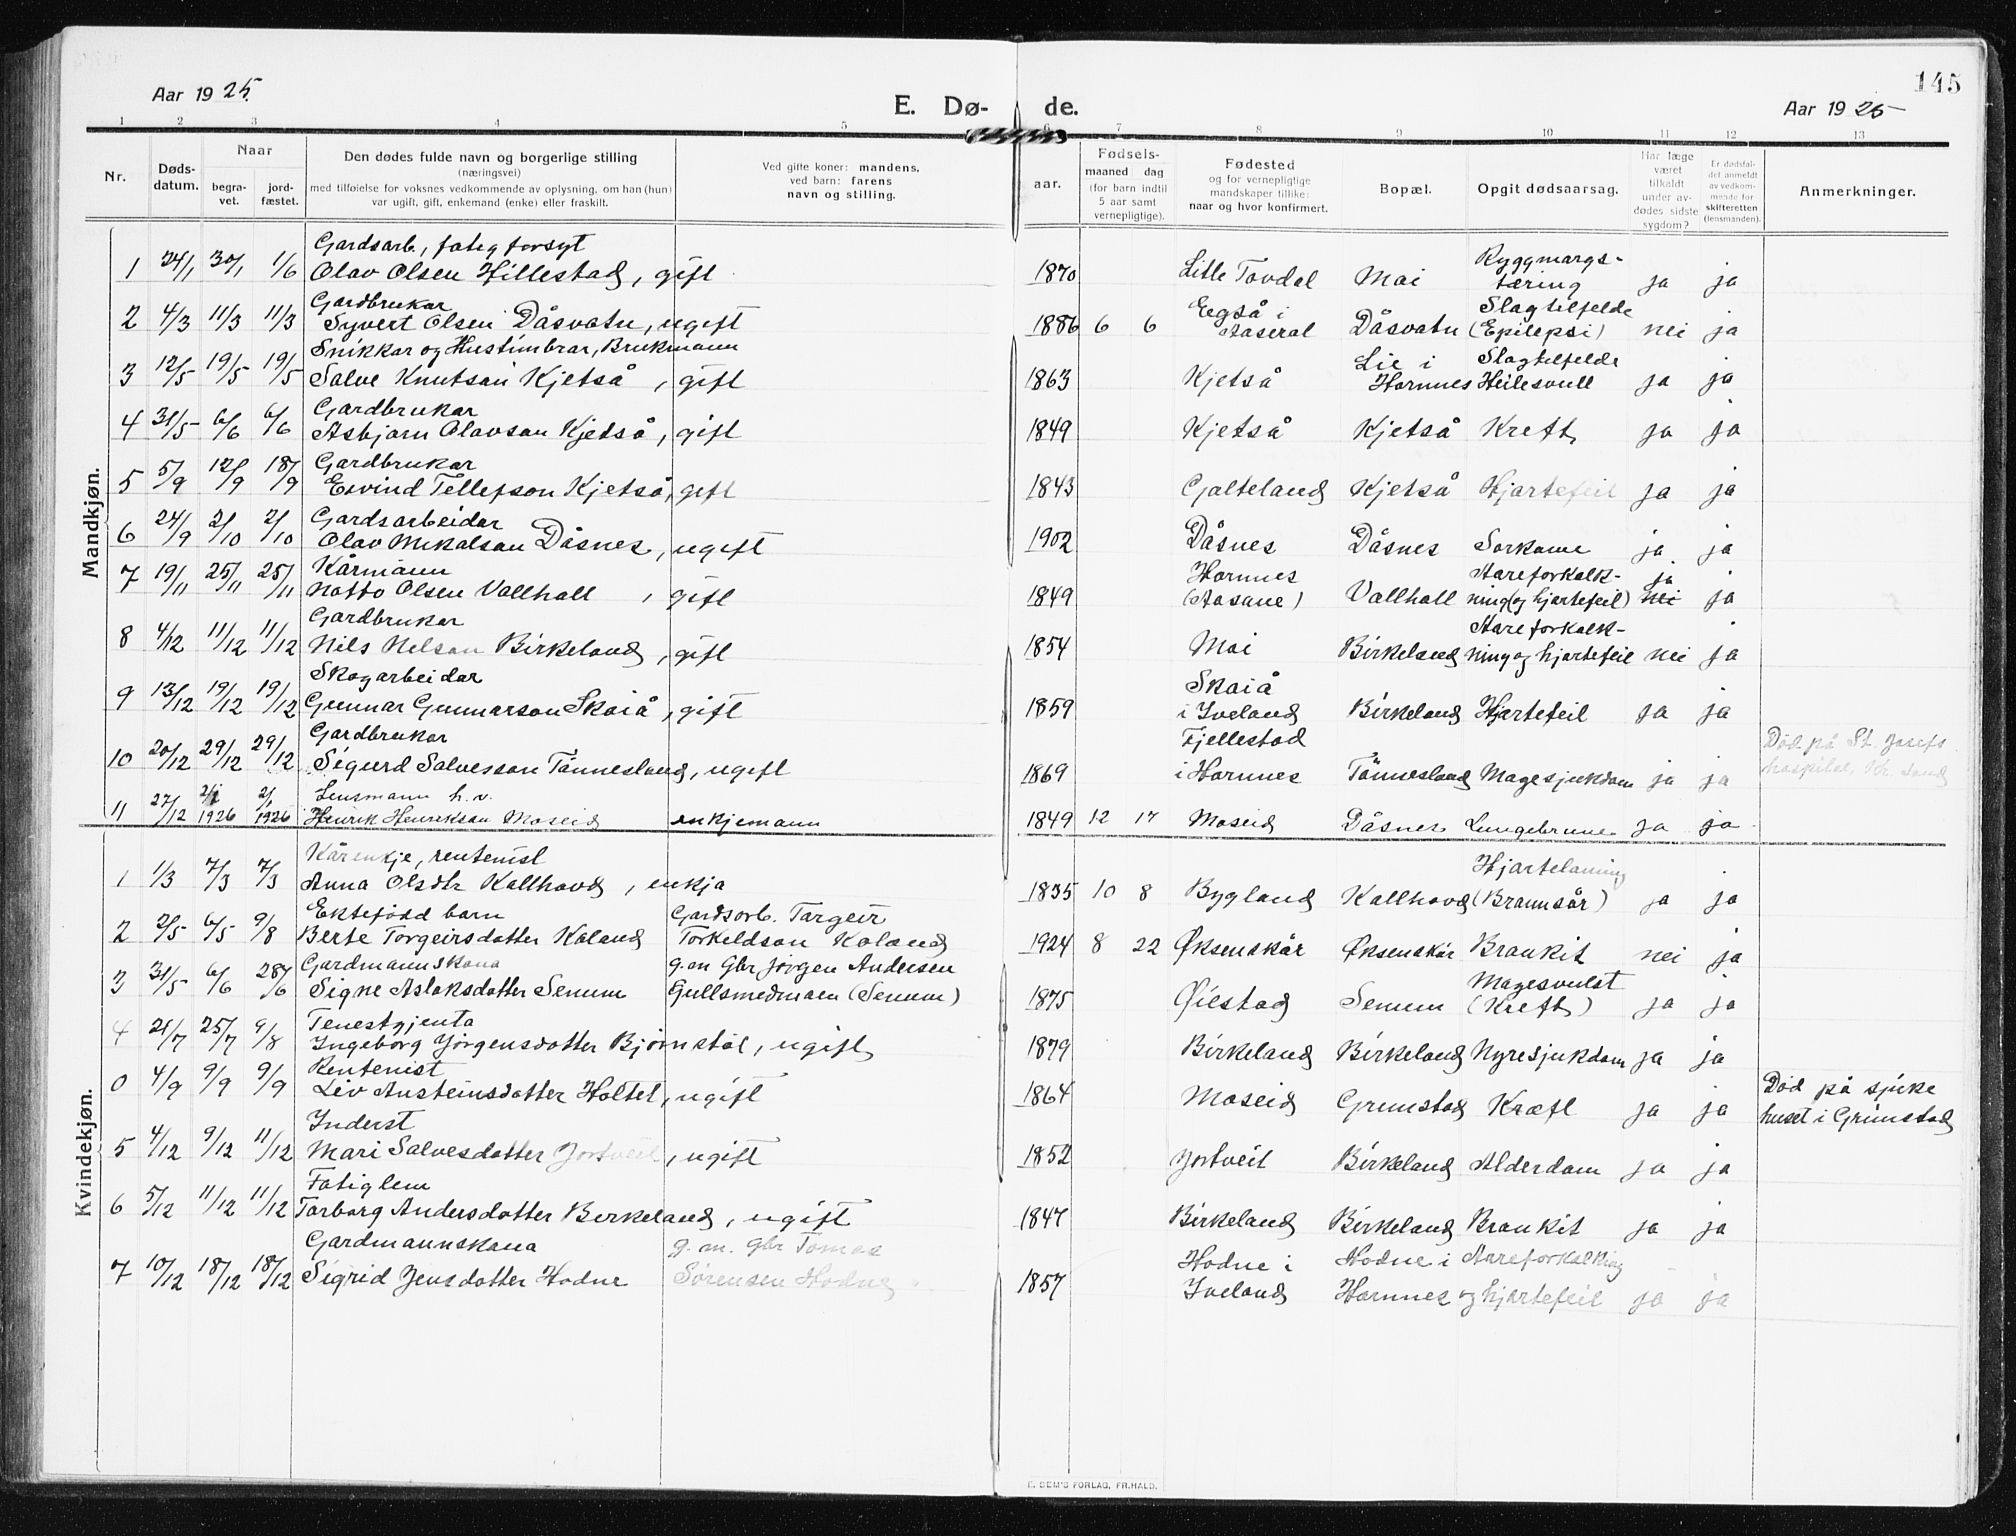 145
Aar 1925.
E. Dø- de.
Aar 1925
1 2 3 4 5 6 7 8 9 10 11 12 13
Nr.
Døds-datum.
Naar
begra-vet.
jord-fæstet.
Den dødes fulde navn og borgerlige stilling
(næringsvei)
med tilføielse for voksnes vedkommende av oplysning, om han (hun)
var ugift, gift, enkemand (enke) eller fraskilt.
Ved gifte koner: mandens,
ved barn: farens
navn og stilling.
aar.
Fødsels-
maaned dag
(for barn indtil
5 aar samt
vernepligtige).
Fødested
og for vernepligtige
mandskaper tillike:
naar og hvor konfirmert.
Bopæl.
Opgit dødsaarsag.
Har læge
været
tilkaldt
under av-
dødes sidste
sygdom?
Er dødsfal-
det anmeldt
av vedkom-
mende for
skifteretten
(lensmanden).
Anmerkninger.
Mandkjøn.
Gardsarb., fatigforsyt Ryggmargs-
1 24/1 30/1 1/6 Olav Olsen Hillestad, gift 1870 Litle Tovdal Moi tæring ja ja
Gardbrukar Eegså i Slagtilfelde
2 4/3 11/3 11/3 Syvert Olsen Dåsvatn, ugift 1886 6 6 Aaseral Dåsvatn (Epilepsi) nei ja
Snikkar og Hustimbrar, Brukmann Lie i Slagtilfelde
3 12/5 19/5 19/5 Salve Knutson Kjetså, gift 1863 Kjetså Hornnes Heilesvull ja ja
Gardbrukar
4 31/5 6/6 6/6 Asbjørn Olavson Kjetså, gift 1849 Kjetså Kjetså Kreft ja ja
Gardbrukar
5 5/9 12/9 18/9 Eivind Tellefson Kjetså, gift 1843 Galteland Kjetså Hjartefeil ja ja
Gardsarbeidar
6 24/9 2/10 2/10 Olav Mikalson Dåsnes, ugift 1902 Dåsnes Dåsnes Sarkome ja ja
Kårmann Hornnes Aareforkalk- ja
7 19/11 25/11 25/11 Notto Olsen Vallhall, gift 1849 (Aasane) Vallhall ning (og hjartefeil) nei ja
Gardbrukar Aareforkalk-
8 4/12 11/12 11/12 Nils Nelson Birkeland, gift 1854 Moi Birkeland ning og hjartefeil nei ja
Skogarbeidar Skaiå
9 13/12 19/12 19/12 Gunnar Gunnarson Skaiå, gift 1859 i Iveland Birkeland Hjartefeil ja ja
Gardbrukar Fjellestad Død på St. Josefs
10 20/12 29/12 29/12 Sigurd Salveson Tønnesland, ugift 1869 i Hornnes Tønnesland Magesjukdom ja ja hospital, Kr. sand
Lensmann h.v.
11 27/12 2/1 1926 2/1 1926 Henrik Henrikson Moseid enkjemann 1849 12 17 Moseid Dåsnes Lungebrune ja ja
Kvindekjøn.
Kårenkje, rentenist Hjartelaming
1 1/3 7/3 7/3 Anna Olsdtr Kallhovd, enkja 1835 10 8 Bygland Kallhovd (Brannsår) ja ja
Ektefødd barn Gardsarb. Targeir
2 2/5 6/5 9/8 Berte Torgeirsdotter Kaland Torkeldson Kaland 1924 8 22 Øksenskår Øksenskår Bronkit nei ja
Gardmannskona g.m. Gbr Jørgen Andersen Magesvulst
3 31/5 6/6 28/6 Signe Aslaksdotter Senum Gullsmedmoen (Senum) 1875 Øilestad Senum (Kreft) ja ja
Tenestgjenta
4 21/7 25/7 9/8 Ingeborg Jørgensdotter Bjørnstøl, ugift 1879 Birkeland Birkeland Nyresjukdom ja ja
Rentenist Død på sjuke
0 4/9 9/9 9/9 Liv Austeinsdotter Holtet, ugift 1864 Moseid Grimstad Kræft ja ja huset i Grimstad
Inderst
5 4/12 9/12 11/12 Mari Salvesdotter Jortveit, ugift 1852 Jortveit Birkeland Alderdom ja ja
Fatiglem
6 5/12 11/12 11/12 Torborg Andersdotter Birkeland, ugift 1847 Birkeland Birkeland Bronkit ja ja
Gardmannskona g.m. gbr Tomas Hodne i Hodne i Aareforkalking
7 10/12 18/12 18/12 Sigrid Jensdotter Hodne Sørensen Hodne 1857 Iveland Hornnes og hjartefeil ja ja
E. SEM'S FORLAG, FR.HALD.